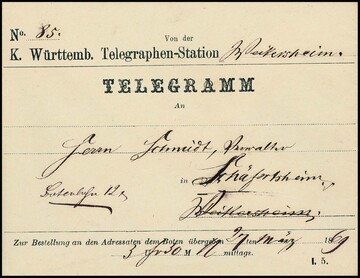 No. 85.
Von der
K. Württemb. Telegraphen-Station Weikersheim.
TELEGRAMM
An
Herrn Schmidt, Verwalter
in Schäftersheim
Botenlohn 12 x
Weikersheim.
Zur Bestellung an den Adressaten dem Boten übergeben 27 ten März 1869
5 Uhr 50 M N mittags.
I. 5.